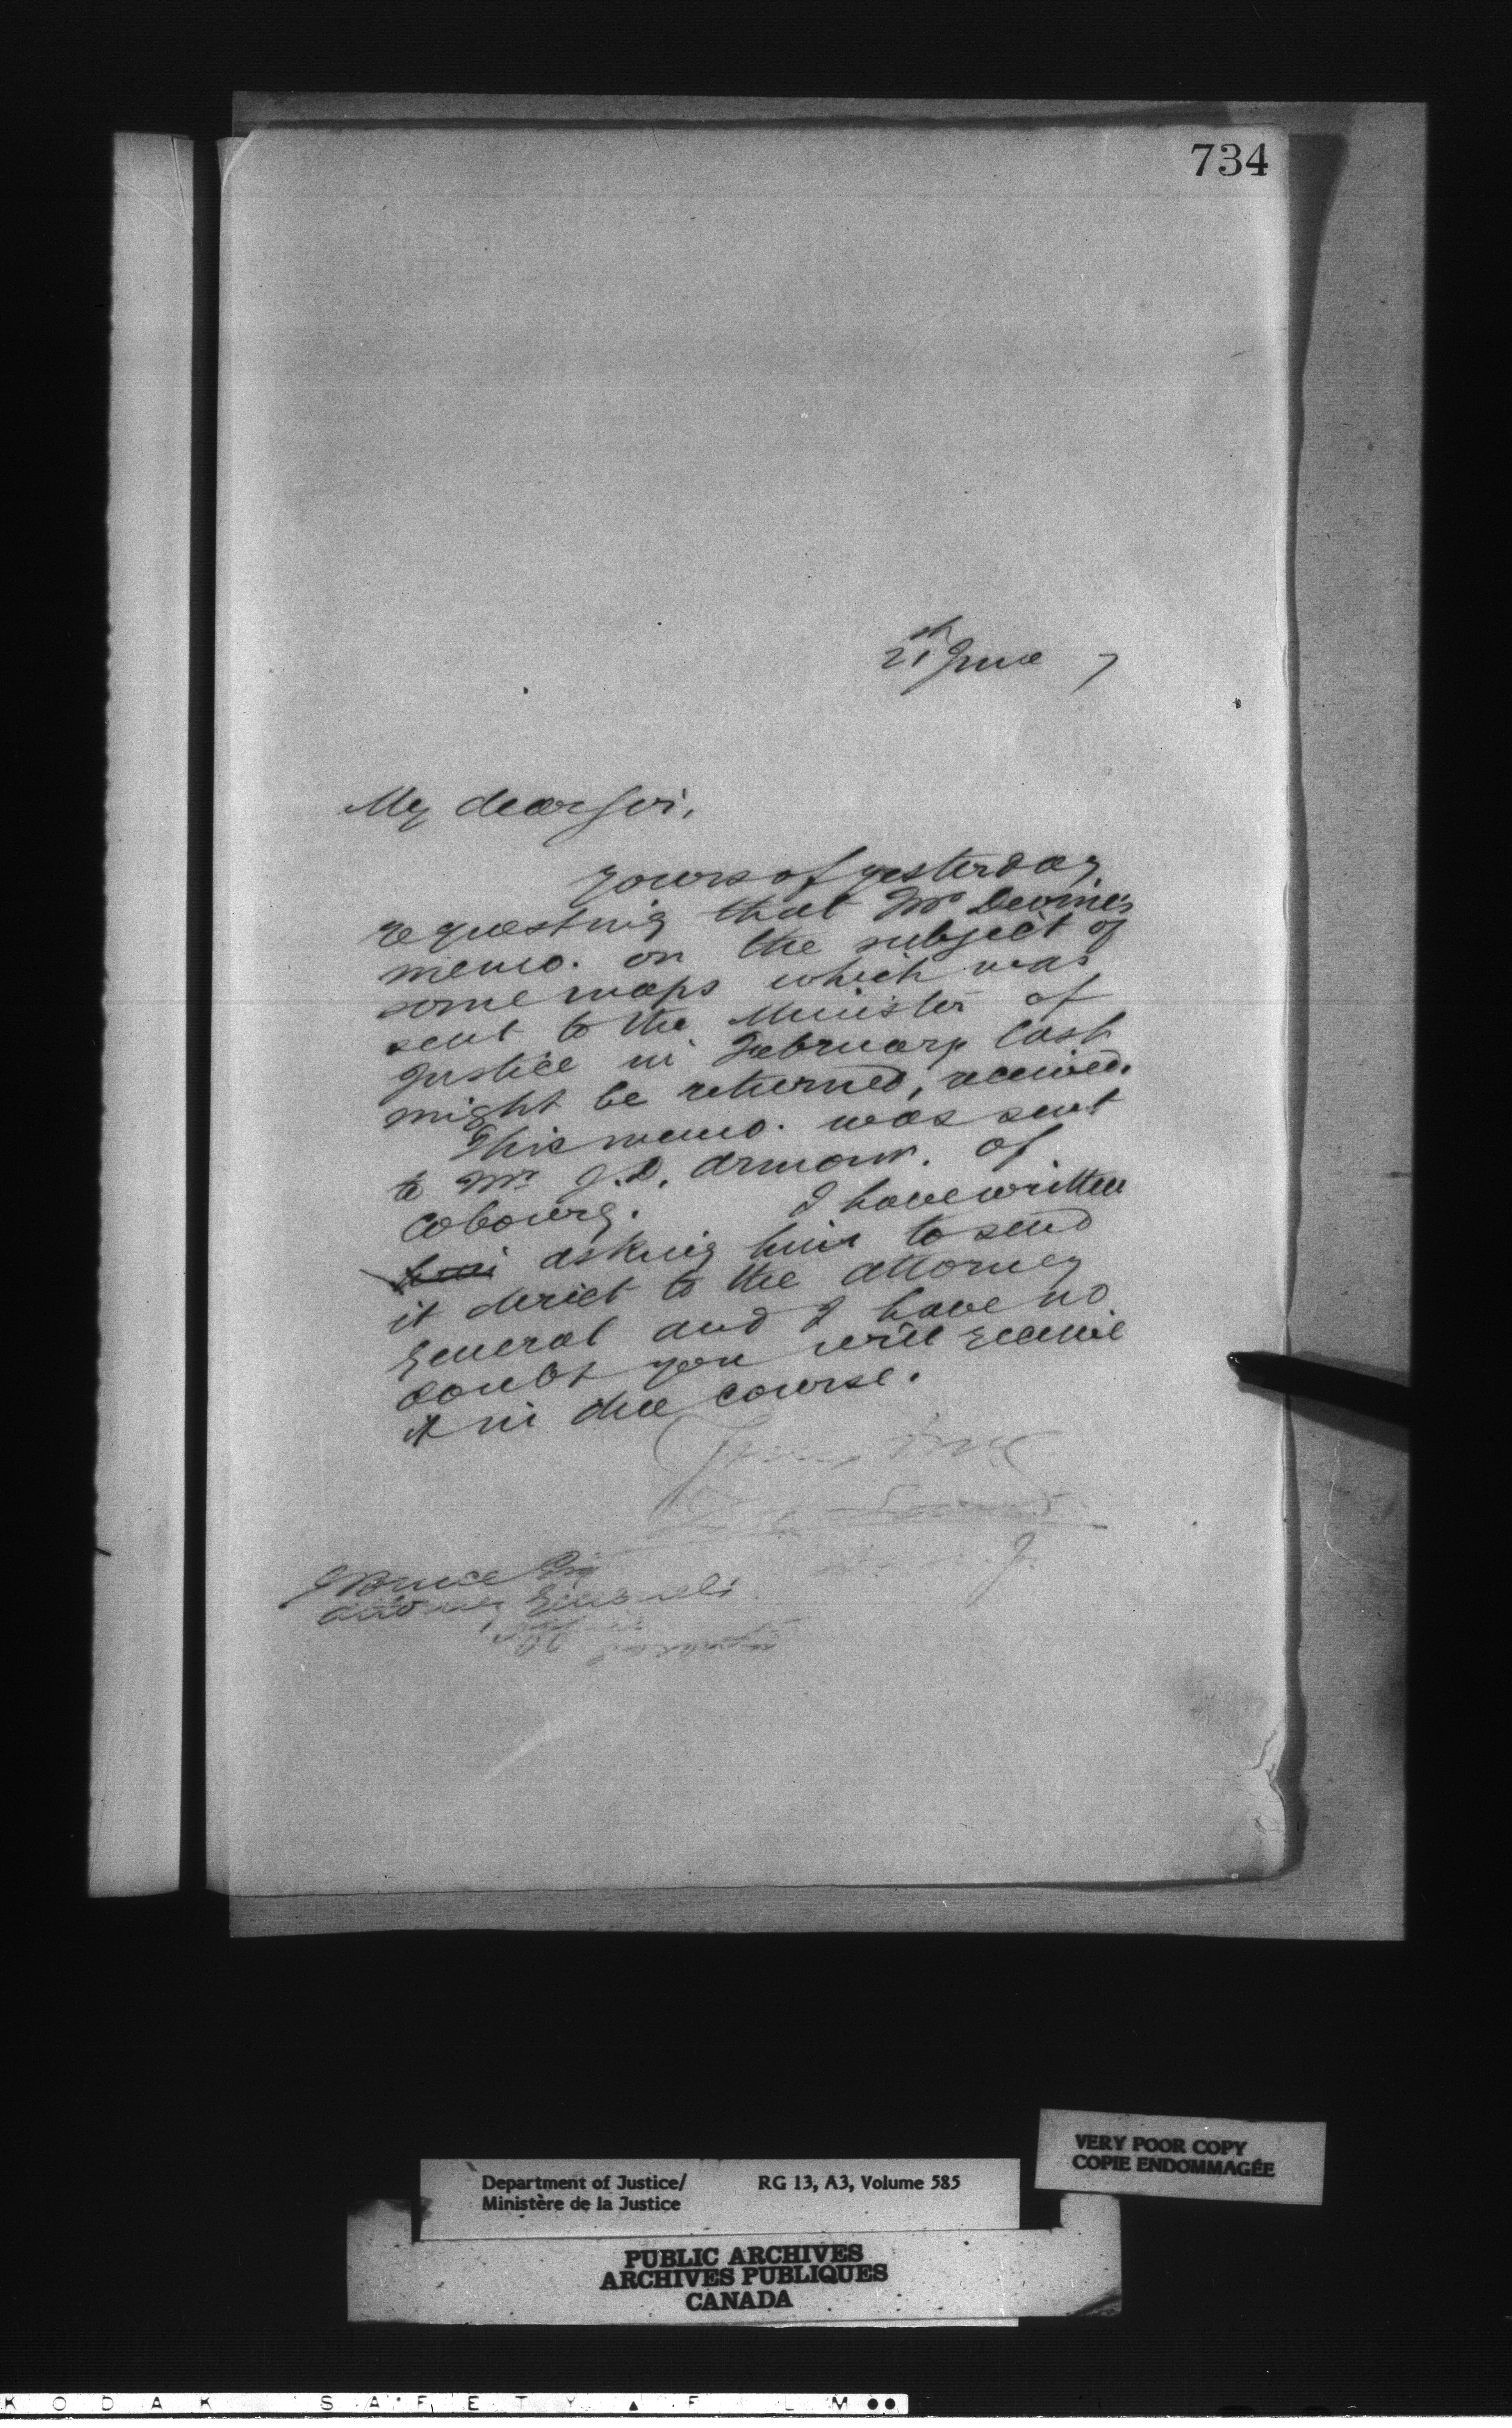 734
21st June 7
My dear Sir,
Yours of yesterday
requesting that Mr Devine's
memo. on the subject of
some maps which was
sent to the Minister of
Justice in February last
might be returned, received.
This memo. was sent
to Mr J.D. Armour. of
Cobourg. I have written
him asking him to send
it direct to the Attorney
General and I have no
doubt you will receive
it in due course.
J Bruce Esq
Attorney General's
Department of Justice/
Ministère de la Justice
RG 13, A3, Volume 585
VERY POOR COPY
COPIE ENDOMMAGÉE
PUBLIC ARCHIVES
ARCHIVES PUBLIQUES
CANADA
KODAK SAFETY ▲ FILM ●●